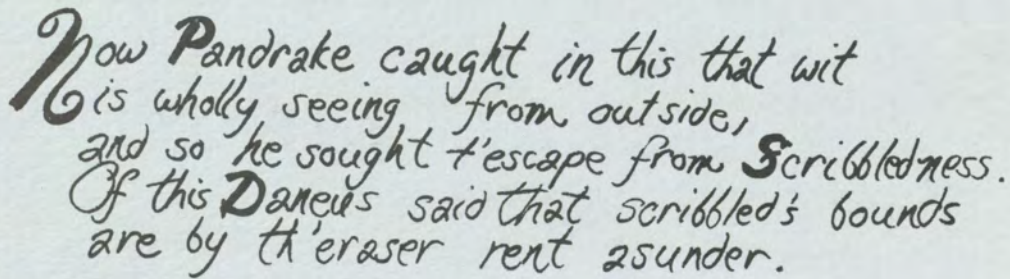 Now Pandrake caught in this that wit
is wholly seeing from outside,
and so he sought t'escape from Scribbledness.
Of this Daneus said that scribbled's bounds
are by th'eraser rent asunder.